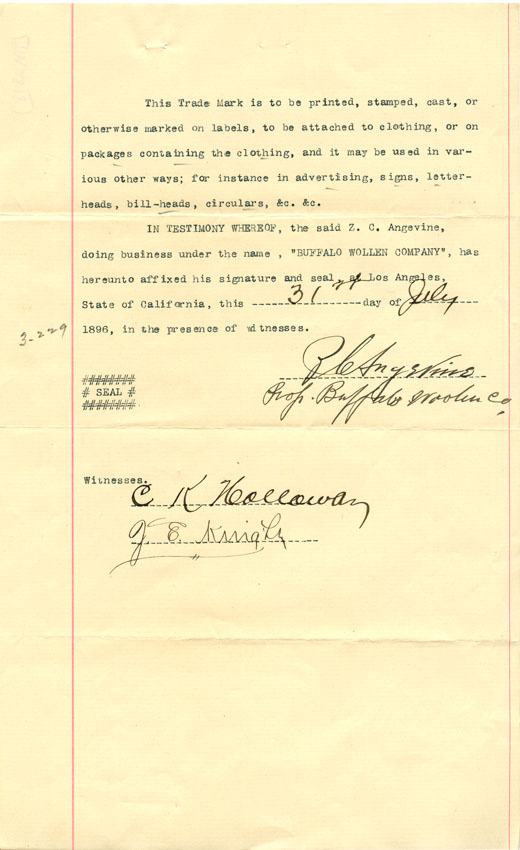 This Trade Mark is to be printed, stamped, cast, or
otherwise marked on labels, to be attached to clothing, or on
packages containing the clothing, and it may be used in var-
ious other ways; for instance in advertising, signs, letter-
heads, bill-heads, circulars, &c. &c.
IN TESTIMONY WHEREOF, the said Z. C. Angevine,
doing business under the name , "BUFFALO WOLLEN COMPANY", has
hereunto affixed his signature and seal, at Los Angeles,
State of California, this 31st day of July
1896, in the presence of witnesses.
3-229
Z C Angevine
########
# SEAL #
########
Prop. Buffalo Woolen Co,
Witnesses.
C K Holloway
J. E. Knight